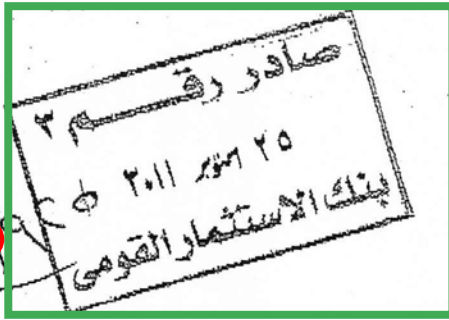 صادر رقم ٢
٢٥ أكتوبر ٢٠١١
بنك الاستثمار القومى